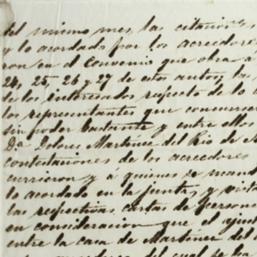 del mismo mes, las citaciones,
y lo acordado por los acreedores
ron en el Convenio que obra a
24, 25, 26 y 27 de estos autos; la
de los interesados respecto de lo a
los representantes que concurrier
sin poder bastante y entre ellos
Dª Dolores Martinez del Rio de M
contestaciones de los acreedores
currieron y á quienes se mand
lo acordado en la junta, y vista
las respectivas cartas de persona
en consideracion que el ajust
entre la casa de Martinez del
del cual se ha